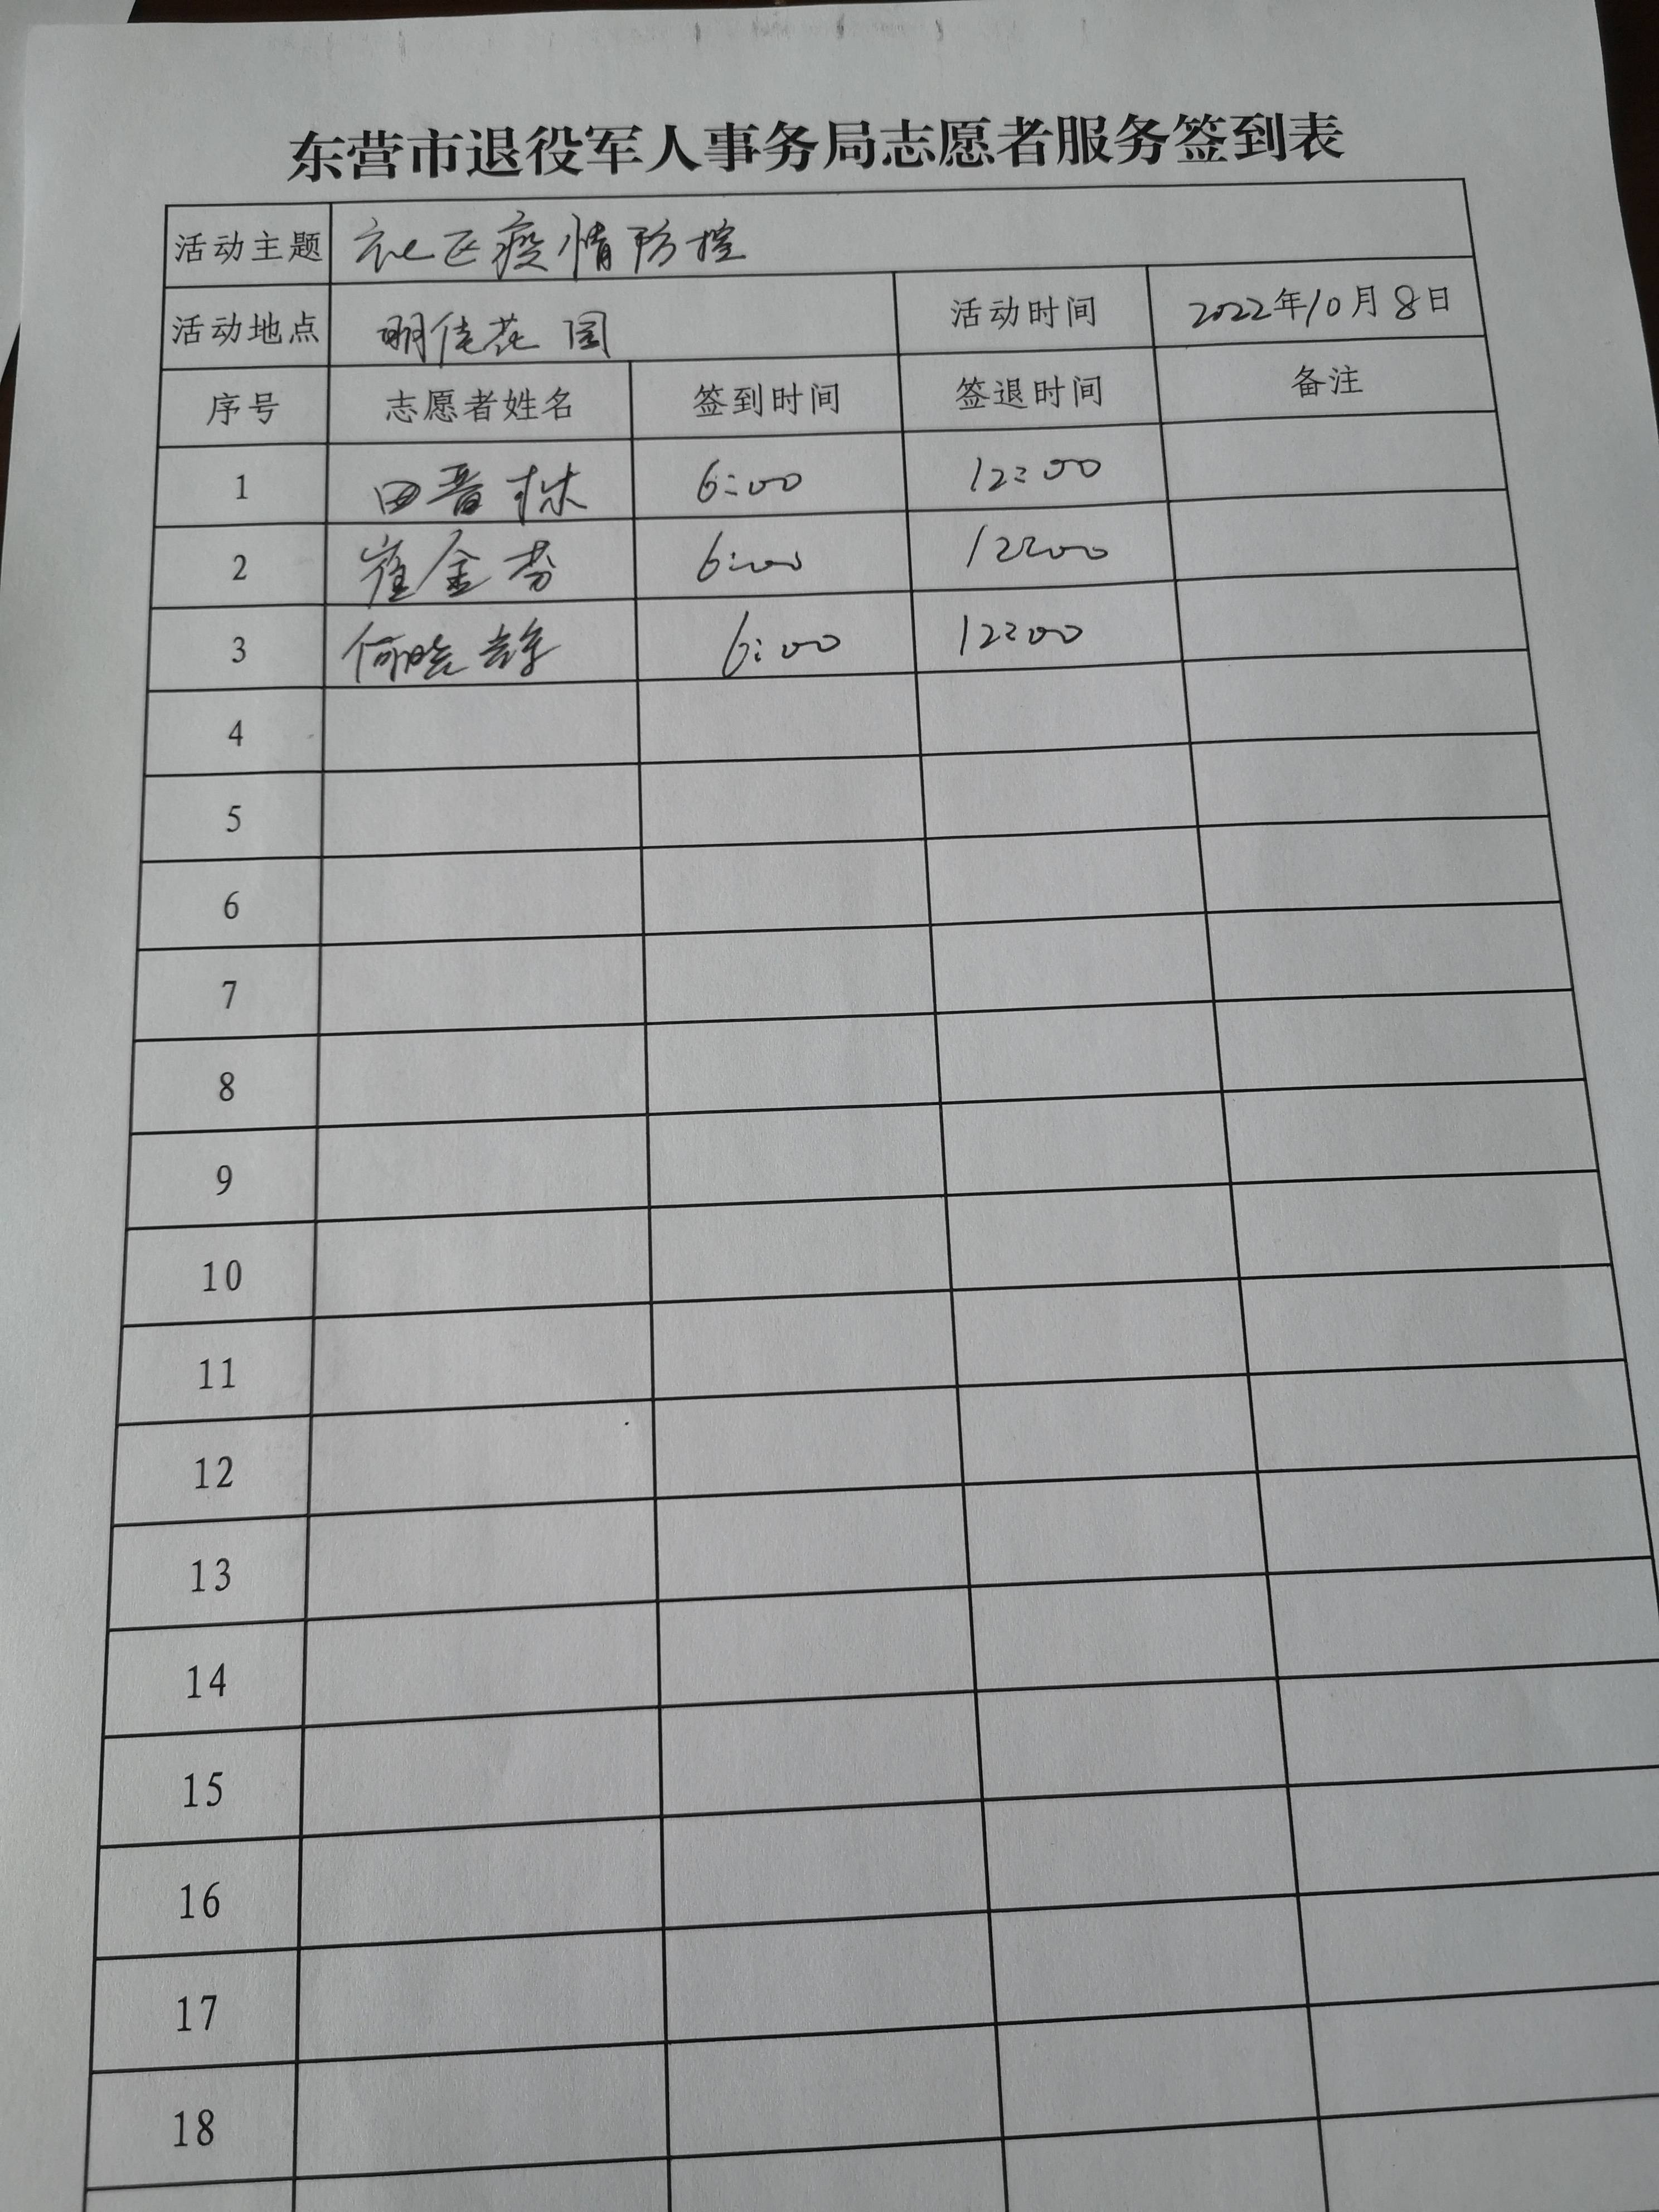 东营市退役军人事务局志愿者服务签到表
活动主题 社区疫情防控
活动地点 明佳花园 活动时间 2022年10月8日
序号 志愿者姓名 签到时间 签退时间 备注
1 田晋林 6:00 12:00
2 崔金芬 6:00 12:00
3 何晓 6:00 12:00
4
5
6
7
8
9
10
11
12
13
14
15
16
17
18